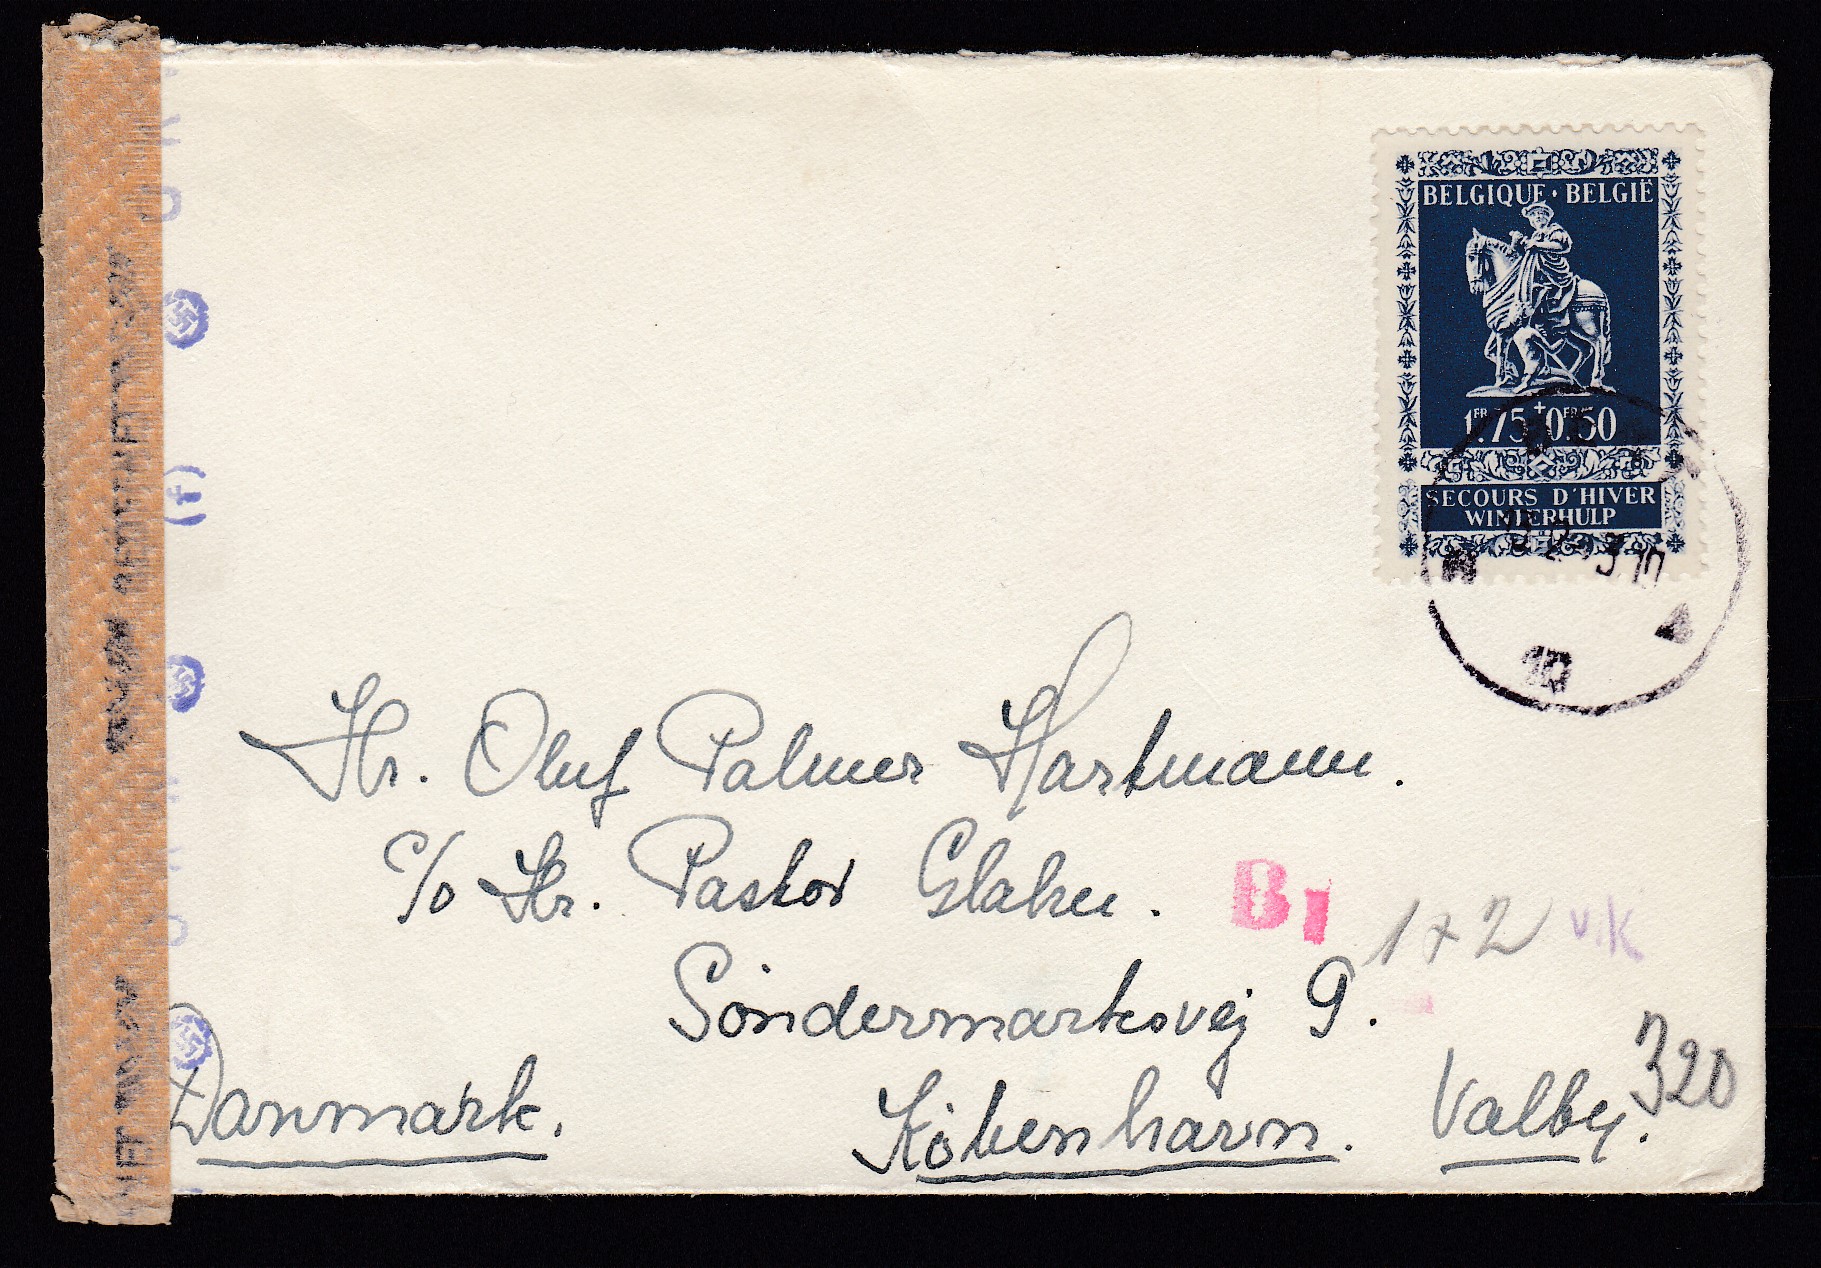 BELGIQUE · BELGIË
1FR.75 + 0FR.50
SECOURS D'HIVER
WINTERHULP
Hr. Oluf Palmer Hartmann.
c/o Hr. Pastor
Söndermarksvej 9.
Köbenhavn. Valby.
Danmark.
B1
1+2
v.K
320
(f)